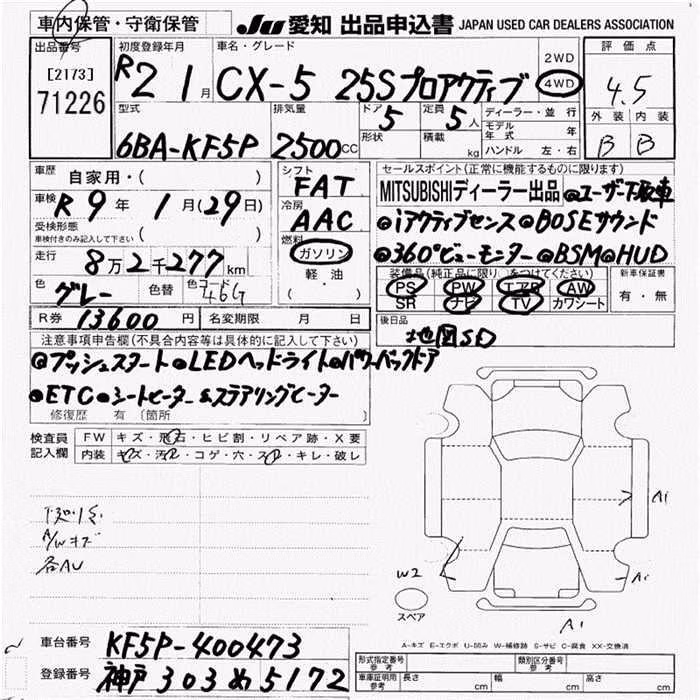 車内保管・守衛保管
JU 愛知 出品申込書 JAPAN USED CAR DEALERS ASSOCIATION
出品番号
[2173]
71226
初度登録年月
R2 1月
車名・グレード
CX-5 25S プロアクティブ
2WD
4WD
評価点
4.5
外装 内装
B B
型式
6BA-KF5P
排気量
2500CC
ドア 5
形状
定員 5人
積載 kg
ディーラー・並行
モデル年式 年
ハンドル 左・右
車歴 自家用・( )
車検 R9年 1月(29日)
受検形態
車検付きのみ記入して下さい ( )
走行 8万2千277km
色 グレー 色替 色コード 46G
シフト FAT
冷房 AAC
燃料
ガソリン
軽油
( )
セールスポイント(正常に機能するものに限ります)
MITSUBISHIディーラー出品 ●ユーザー下取車
●iアクティブセンス ●BOSEサウンド
●360°ビューモニター ●BSM ●HUD
装備品(純正品に限り)をつけてください
PS PW エアB AW
SR ナビ TV カワシート
新車保証書
有・無
R券 13600円 名変期限 月 日
後日品
地図SD
注意事項申告欄(不具合内容等は具体的に記入して下さい)
●プッシュスタート ●LEDヘッドライト ●パワーバックドア
●ETC ●シートヒーター &ステアリングヒーター
修復歴 有 (箇所 )
検査員記入欄
FW キズ・飛石・ヒビ割・リペア跡・X要
内装 キズ・汚れ・コゲ・穴・スレ・キレ・破レ
A/Wキズ
各AU
A1
W2
A1
スペア
A1
A-キズ E-エクボ U-凹み W-補修跡 S-サビ C-腐食 XX-交換済
車台番号 KF5P-400473
登録番号 神戸 303 め 5172
形式指定番号 参考 類別区分番号 参考
車庫証明用 参考 長さ cm 幅 cm 高さ cm